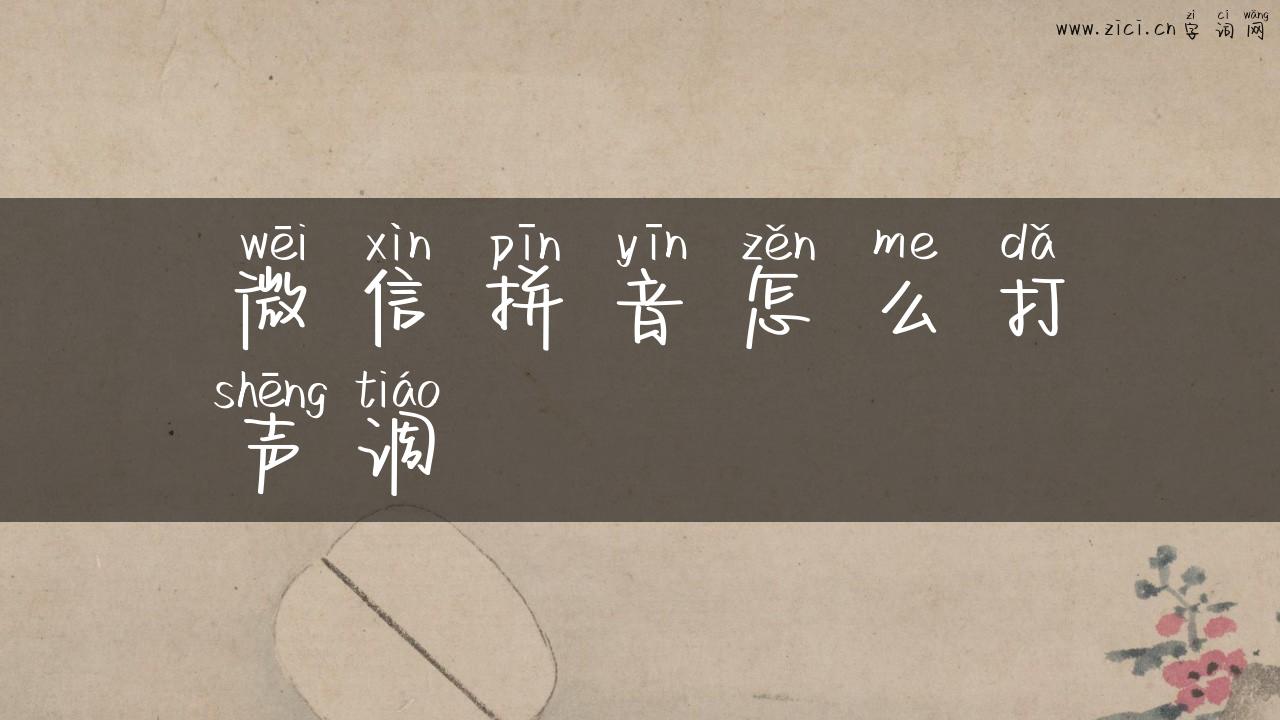 zì cí wǎng
www.zici.cn 字 词 网
wēi xìn pīn yīn zěn me dǎ
微 信 拼 音 怎 么 打
shēng tiáo
声 调